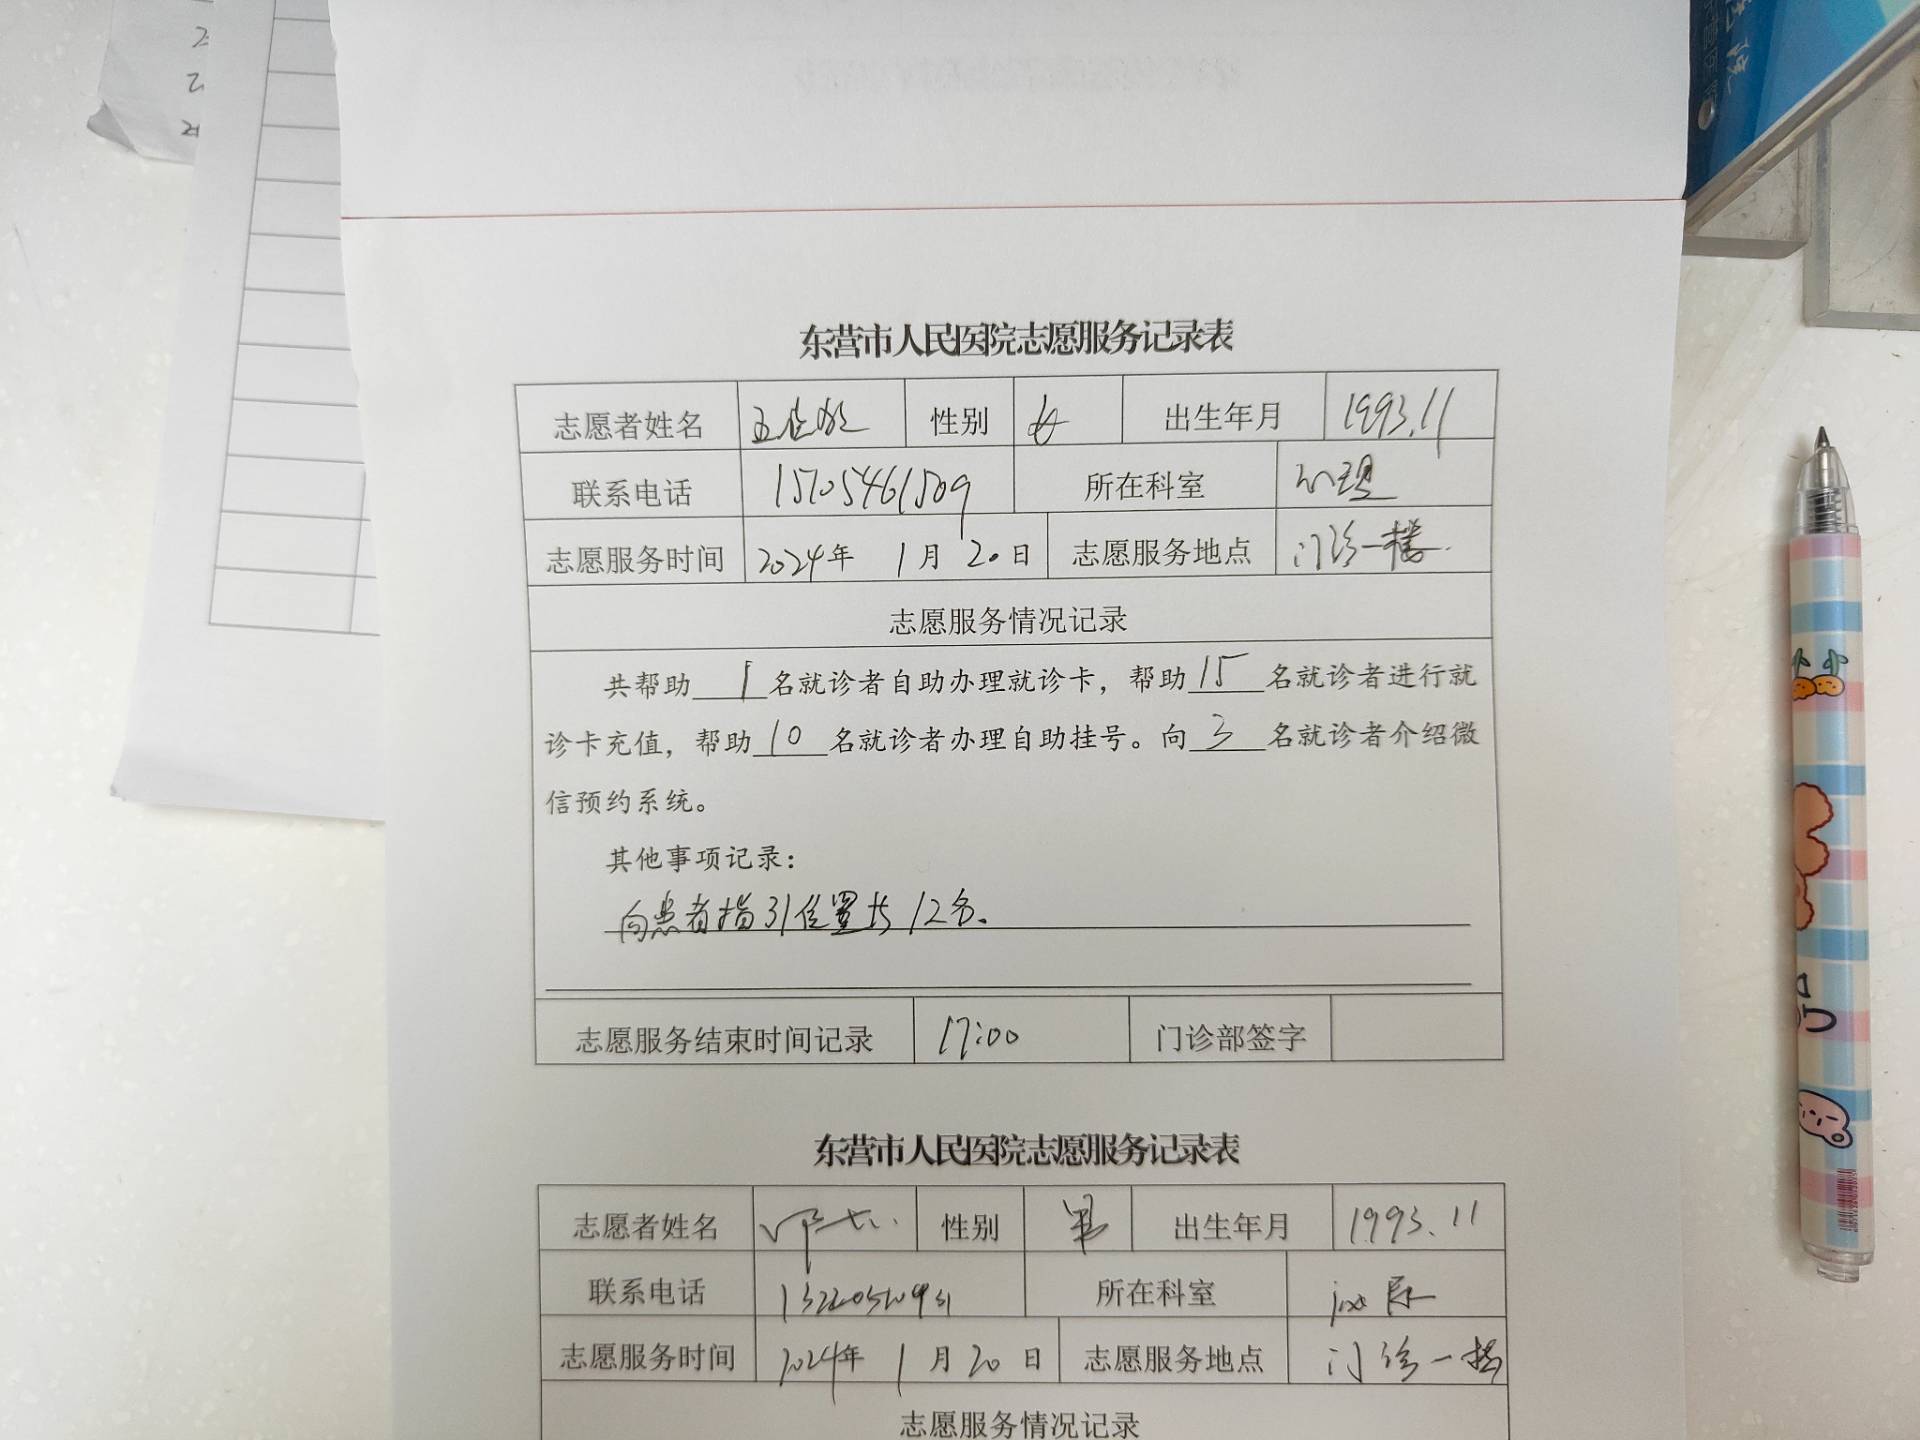 东营市人民医院志愿服务记录表
志愿者姓名 性别 女 出生年月 1993.11
联系电话 15705461509 所在科室 心理
志愿服务时间 2024年 1月 20日 志愿服务地点 门诊一楼
志愿服务情况记录
共帮助 1 名就诊者自助办理就诊卡，帮助 15 名就诊者进行就
诊卡充值，帮助 10 名就诊者办理自助挂号。向 3 名就诊者介绍微
信预约系统。
其他事项记录：
向患者指引位置共12名。
志愿服务结束时间记录 17:00 门诊部签字
东营市人民医院志愿服务记录表
志愿者姓名 性别 男 出生年月 1993.11
联系电话 所在科室
志愿服务时间 2024年 1月 20日 志愿服务地点 门诊一楼
志愿服务情况记录